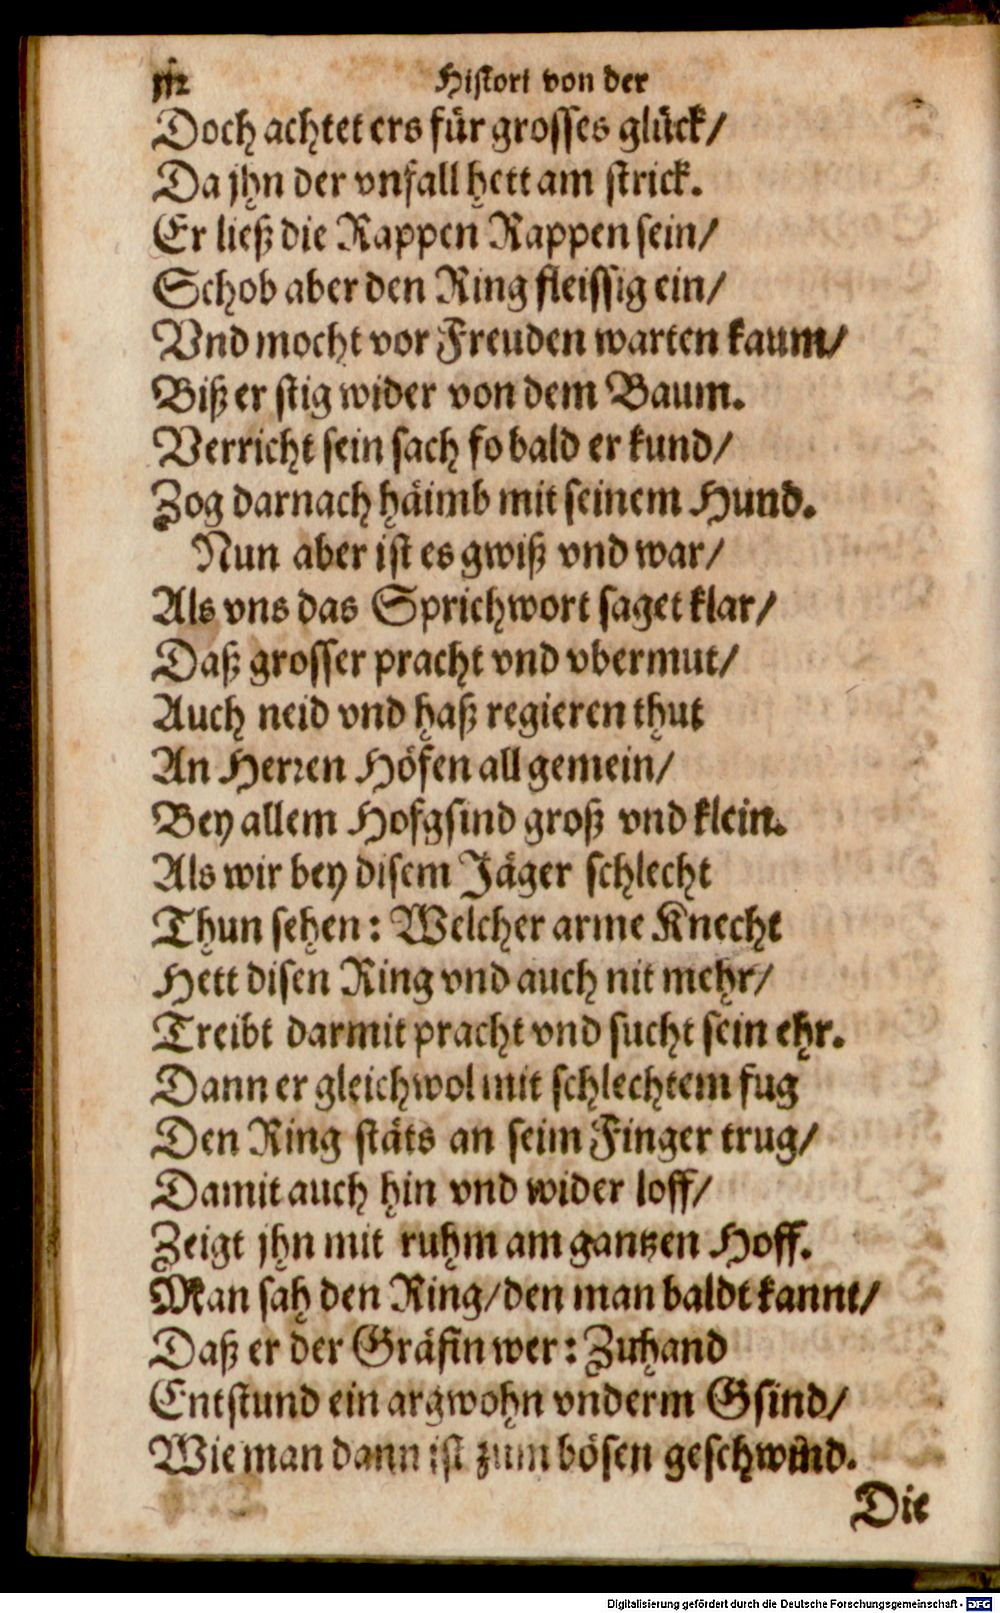 Histori von der
Doch achtet ers für grosses glück/
Da jhn der vnfall hett am strick.
Er ließ die Rappen Rappen sein/
Schob aber den Ring fleissig ein/
Vnd mocht vor Freuden warten kaum/
Biß er stig wider von dem Baum.
Verricht sein sach so bald er kund/
Zog darnach häimb mit seinem Hund.
Nun aber ist es gwiß vnd war/
Als vns das Sprichwort saget klar/
Daß grosser pracht vnd vbermut/
Auch neid vnd haß regieren thut
An Herren Höfen all gemein/
Bey allem Hofgsind groß vnd klein.
Als wir bey disem Jäger schlecht
Thun sehen: Welcher arme Knecht
Hett disen Ring vnd auch nit mehr/
Treibt darmit pracht vnd sucht sein ehr.
Dann er gleichwol mit schlechtem fug
Den Ring stäts an seim Finger trug/
Damit auch hin vnd wider loff/
Zeigt jhn mit ruhm am gantzen Hoff.
Man sah den Ring/den man baldt kannt/
Daß er der Gräfin wer: Zuhand
Entstund ein argwohn vnderm Gsind/
Wie man dann ist zum bösen geschwind.
Die
Digitalisierung gefördert durch die Deutsche Forschungsgemeinschaft - DFG